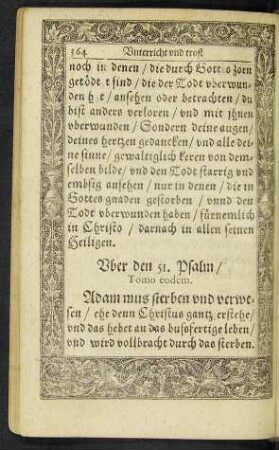 364 Vnterricht vnd trost
noch in denen / die durch Gottes zorn
getödt t sind / die der Todt vberwun-
den h t / ansehen oder betrachten / du
bist anders verloren / vnd mit jhnen
vberwunden / Sondern deine augen /
deines hertzen gedancken / vnd alle dei-
ne sinne / gewaltiglich keren von dem-
selben bilde / vnd den Todt starrig vnd
embsig ansehen / nur in denen / die in
Gottes gnaden gestorben / vnnd den
Todt vberwunden haben / fürnemlich
in Christo / darnach in allen seinen
Heiligen.
Vber den 51. Psalm /
Tomo eodem.
Adam mus sterben vnd verwe-
sen / ehe denn Christus gantz erstehe /
vnd das hebet an das busfertige leben /
vnd wird vollbracht durch das sterben.